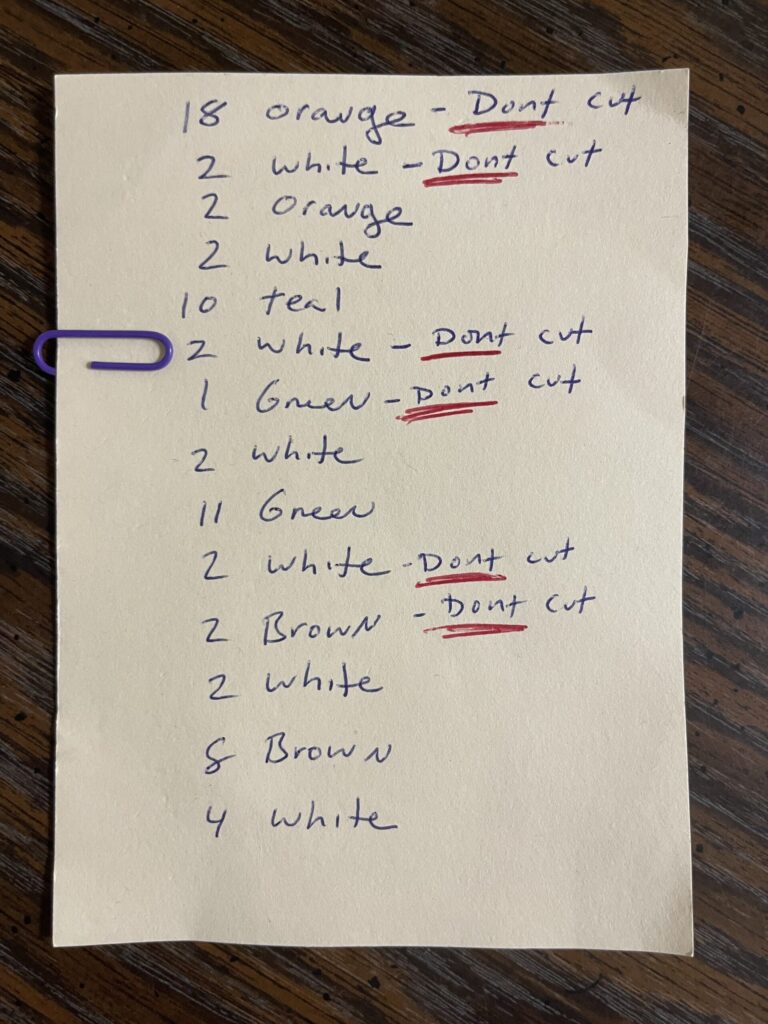 18 orange - Dont cut
2 white - Dont cut
2 orange
2 white
10 teal
2 white - Dont cut
1 Green - Dont cut
2 white
11 Green
2 white - Dont cut
2 Brown - Dont cut
2 white
8 Brown
4 white